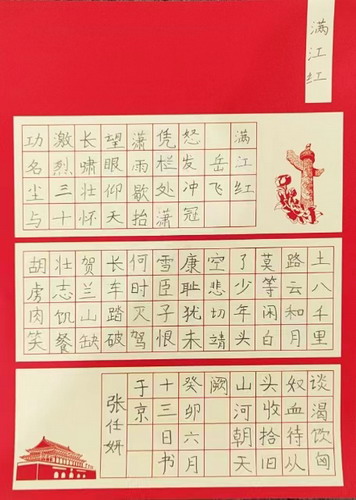 满江红
满江红
岳飞
怒发冲冠
凭栏处潇
潇雨歇抬
望眼仰天
长啸壮怀
激烈三十
功名尘与
土八千里
路云和月
莫等闲白
了少年头
空悲切靖
康耻犹未
雪臣子恨
何时灭驾
长车踏破
贺兰山缺
壮志饥餐
胡虏肉笑
谈渴饮匈
奴血待从
头收拾旧
山河朝天
阙
癸卯六月
十三日书
于京
张任妍